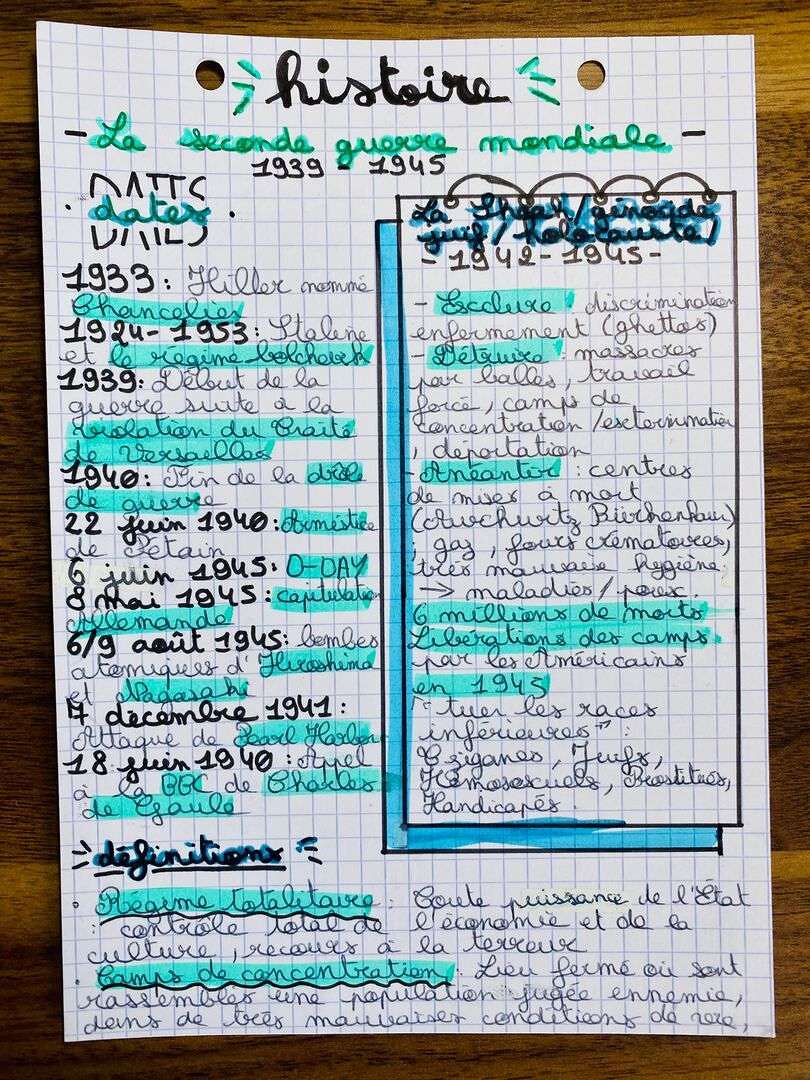 histoire
- La seconde guerre mondiale -
1939 - 1945
DATES
. dates .
1933 : Hitler nommé
Chancelier
1924 - 1953 : Staline
et le régime bolchevik
1939 : Début de la
guerre suite à la
violation du Traité
de Versailles
1940 : Fin de la drôle
de guerre
22 juin 1940 : Armistice
de Pétain
6 juin 1945 : D-DAY
8 mai 1945 : capitulation
Allemande
6/9 août 1945 : bombes
atomiques d'Hiroshima
et Nagasaki
7 décembre 1941 :
Attaque de Pearl Harbor
18 juin 1940 : Appel
à la BBC de Charles
de Gaule
La Shoah / génocide
juif / holocauste /
- 1942 - 1945 -
- Exclure : discrimination
enfermement (ghettos)
- Détruire : massacres
par balles, travail
forcé, camps de
concentration / extermination
, déportation
- Anéantir : centres
de mises à mort
(Auchwitz Birkenhau)
, gaz, fours crématoires,
très mauvaise hygiène
→ maladies / poux.
6 millions de morts
Libérations des camps
par les Américains
en 1945
" tuer les races
inférieures " :
Tziganes, Juifs,
Homosexuels, Prostitués,
Handicapés.
définitions
. Régime totalitaire : Toute puissance de l'État
: contrôle total de l'économie et de la
culture, recours à la terreur
. Camps de concentration : Lieu fermé où sont
rassemblés une population jugée ennemie,
dans de très mauvaises conditions de vie,